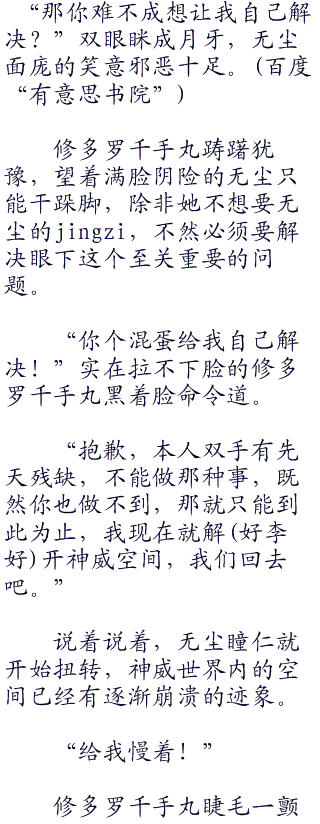 “那你难不成想让我自己解
决？”双眼眯成月牙，无尘
面庞的笑意邪恶十足。(百度
“有意思书院”)
修多罗千手丸踌躇犹
豫，望着满脸阴险的无尘只
能干跺脚，除非她不想要无
尘的jingzi，不然必须要解
决眼下这个至关重要的问
题。
“你个混蛋给我自己解
决！”实在拉不下脸的修多
罗千手丸黑着脸命令道。
“抱歉，本人双手有先
天残缺，不能做那种事，既
然你也做不到，那就只能到
此为止，我现在就解(好李
好)开神威空间，我们回去
吧。”
说着说着，无尘瞳仁就
开始扭转，神威世界内的空
间已经有逐渐崩溃的迹象。
“给我慢着！”
修多罗千手丸睫毛一颤